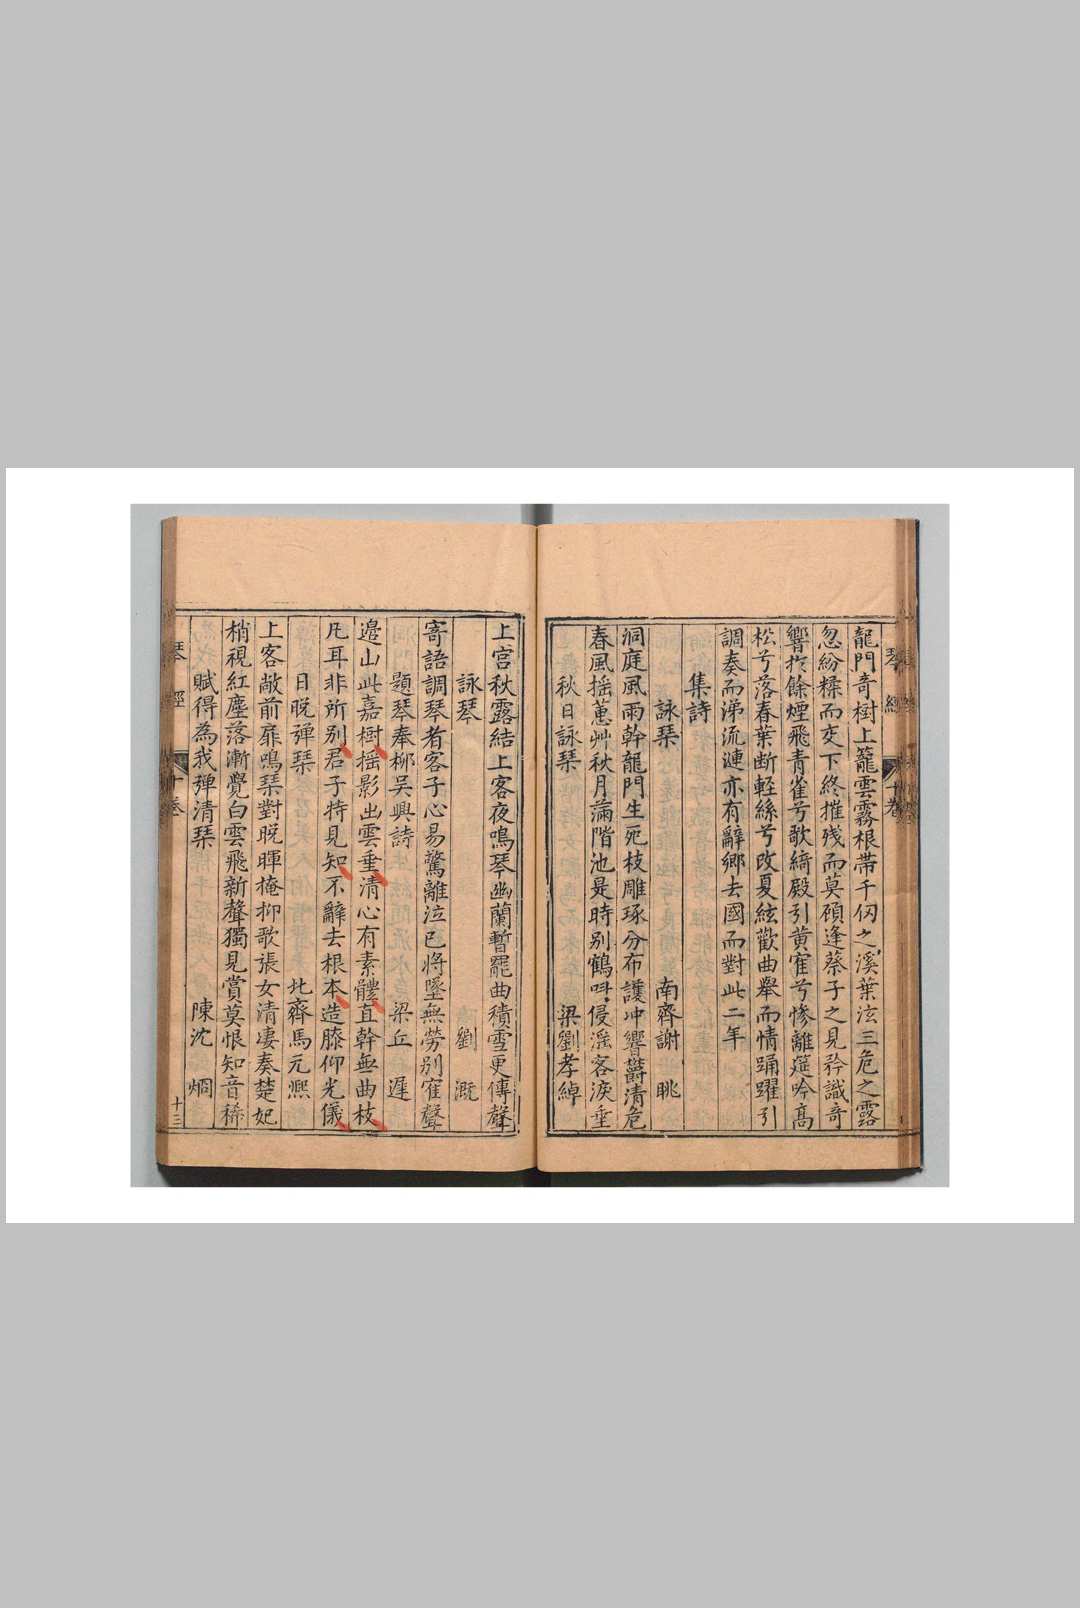 龍門竒樹上籠雲霧根帶千仭之溪葉泫三危之露
忽紛糅而交下終摧殘而莫顧逢蔡子之見矜識竒
響扵餘煙飛青雀兮歌綺殿引黄寉兮惨離筵吟髙
松兮落春葉断軽絲兮改夏絃歡曲舉而情踊躍引
調奏而涕流漣亦有辭鄉去國而對此二年
集詩
詠琹 南齊謝 眺
洞庭風雨幹龍門生死枝雕琢分布護冲響欝清危
春風揺蕙艸秋月滿階池是時别鶴呌侵滛客淚垂
秋日詠琹 梁劉孝綽
上宫秋露結上客夜鳴琴幽蘭暫罷曲積雪更傳聲
詠琴 劉 溉
寄語調琴者客子心易驚離泣已將墜無勞别寉聲
題琴奉柳吳興詩 梁丘 遲
邉山此嘉樹揺影出雲垂清心有素體直幹無曲枝
凡耳非所别君子特見知不辭去根本造膝仰光儀
日晩弹琹 北齊馬元熈
上客敞前扉鳴琹對晩暉掩抑歌張女清凄奏楚妃
梢視紅塵落漸覺白雲飛新聲獨見賞莫恨知音稀
賦得為我弹清琹 陳沈 炯
琴經
十卷
十三